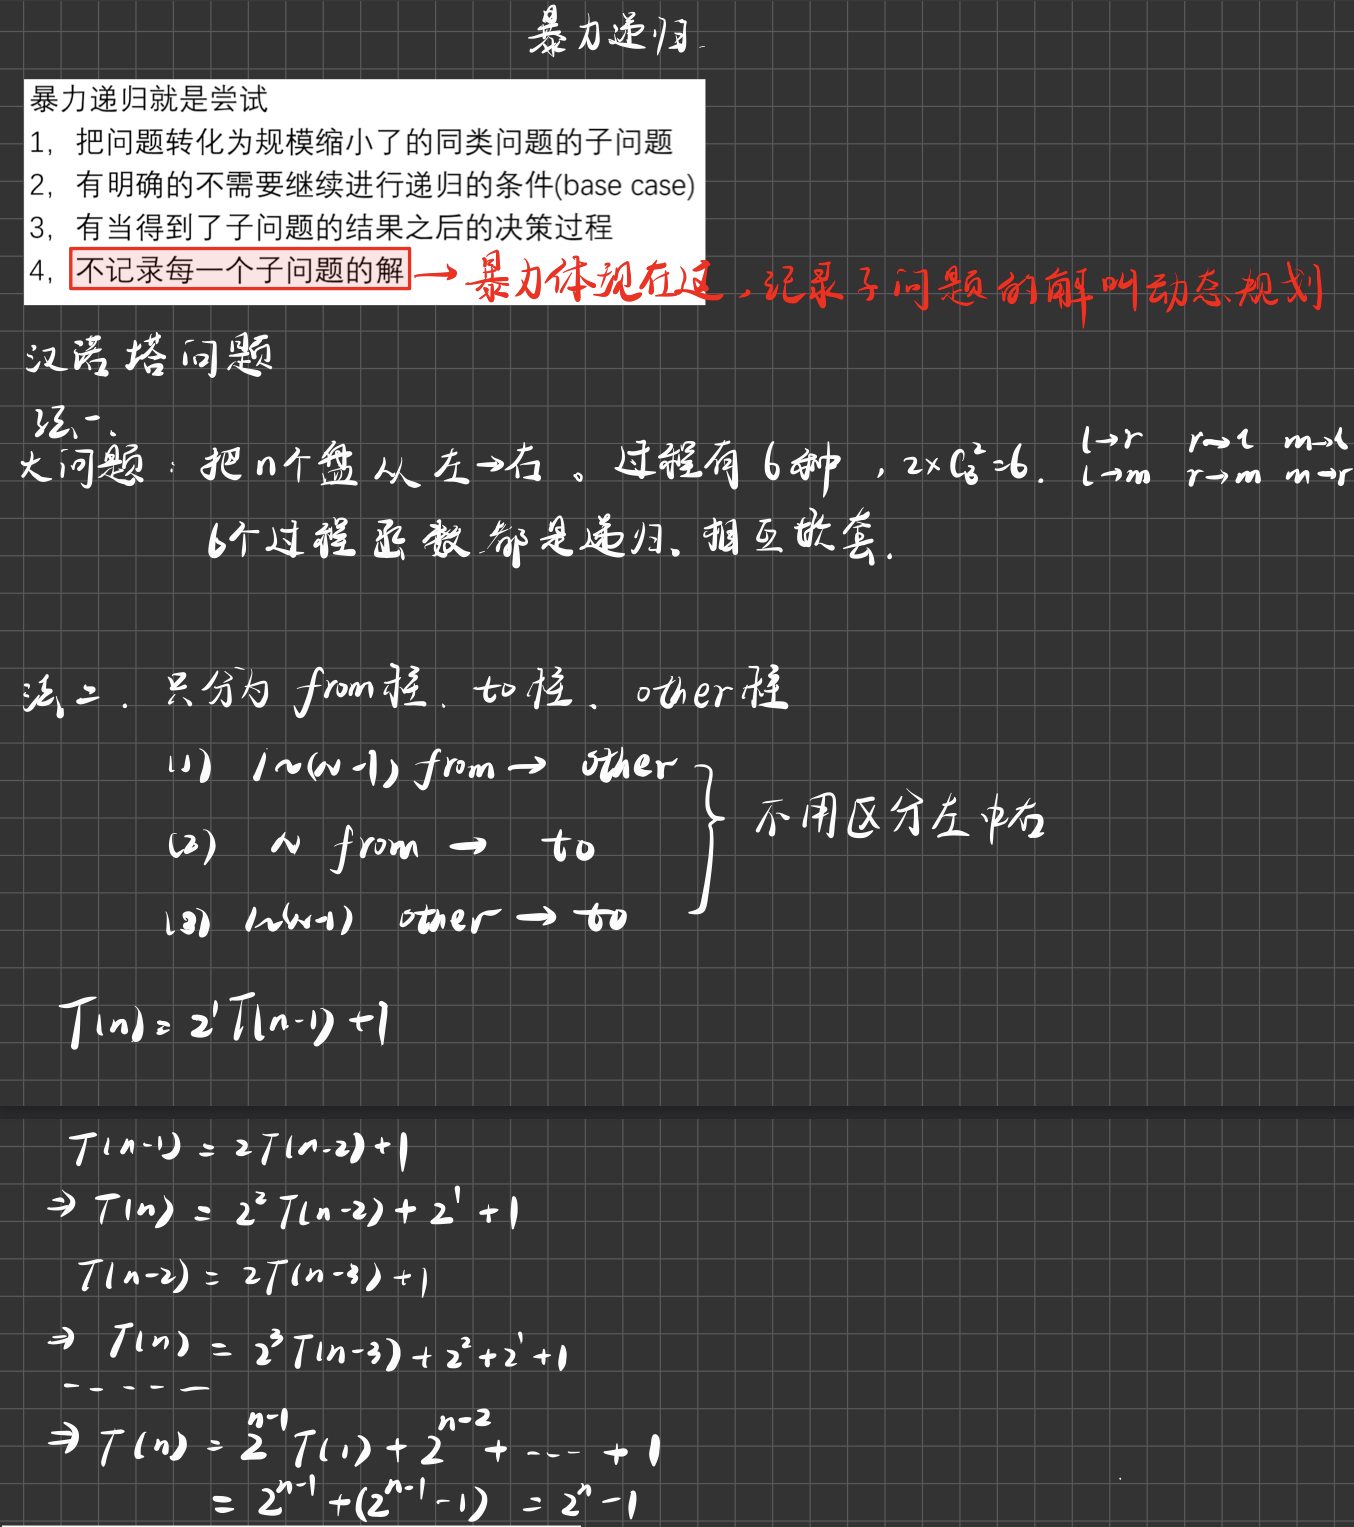 暴力递归
暴力递归就是尝试
1，把问题转化为规模缩小了的同类问题的子问题
2，有明确的不需要继续进行递归的条件(base case)
3，有当得到了子问题的结果之后的决策过程
4，不记录每一个子问题的解 → 暴力体现在这，记录子问题的解叫动态规划
汉诺塔问题
法一、
大问题：把n个盘从左→右。过程有6种，2×C₃²=6. l→r r→l m→l
l→m r→m m→r
6个过程函数都是递归、相互嵌套.
法二．只分为from柱、to柱、other柱
(1) 1~(N-1) from → other
(2) N from → to
(3) 1~(N-1) other → to
不用区分左中右
T(n) = 2¹T(n-1)+1
T(n-1) = 2T(n-2)+1
⇒ T(n) = 2²T(n-2)+2¹+1
T(n-2) = 2T(n-3)+1
⇒ T(n) = 2³T(n-3)+2²+2¹+1
-----
⇒ T(n) = 2ⁿ⁻¹T(1)+2ⁿ⁻²+----+1
= 2ⁿ⁻¹+(2ⁿ⁻¹-1) = 2ⁿ-1